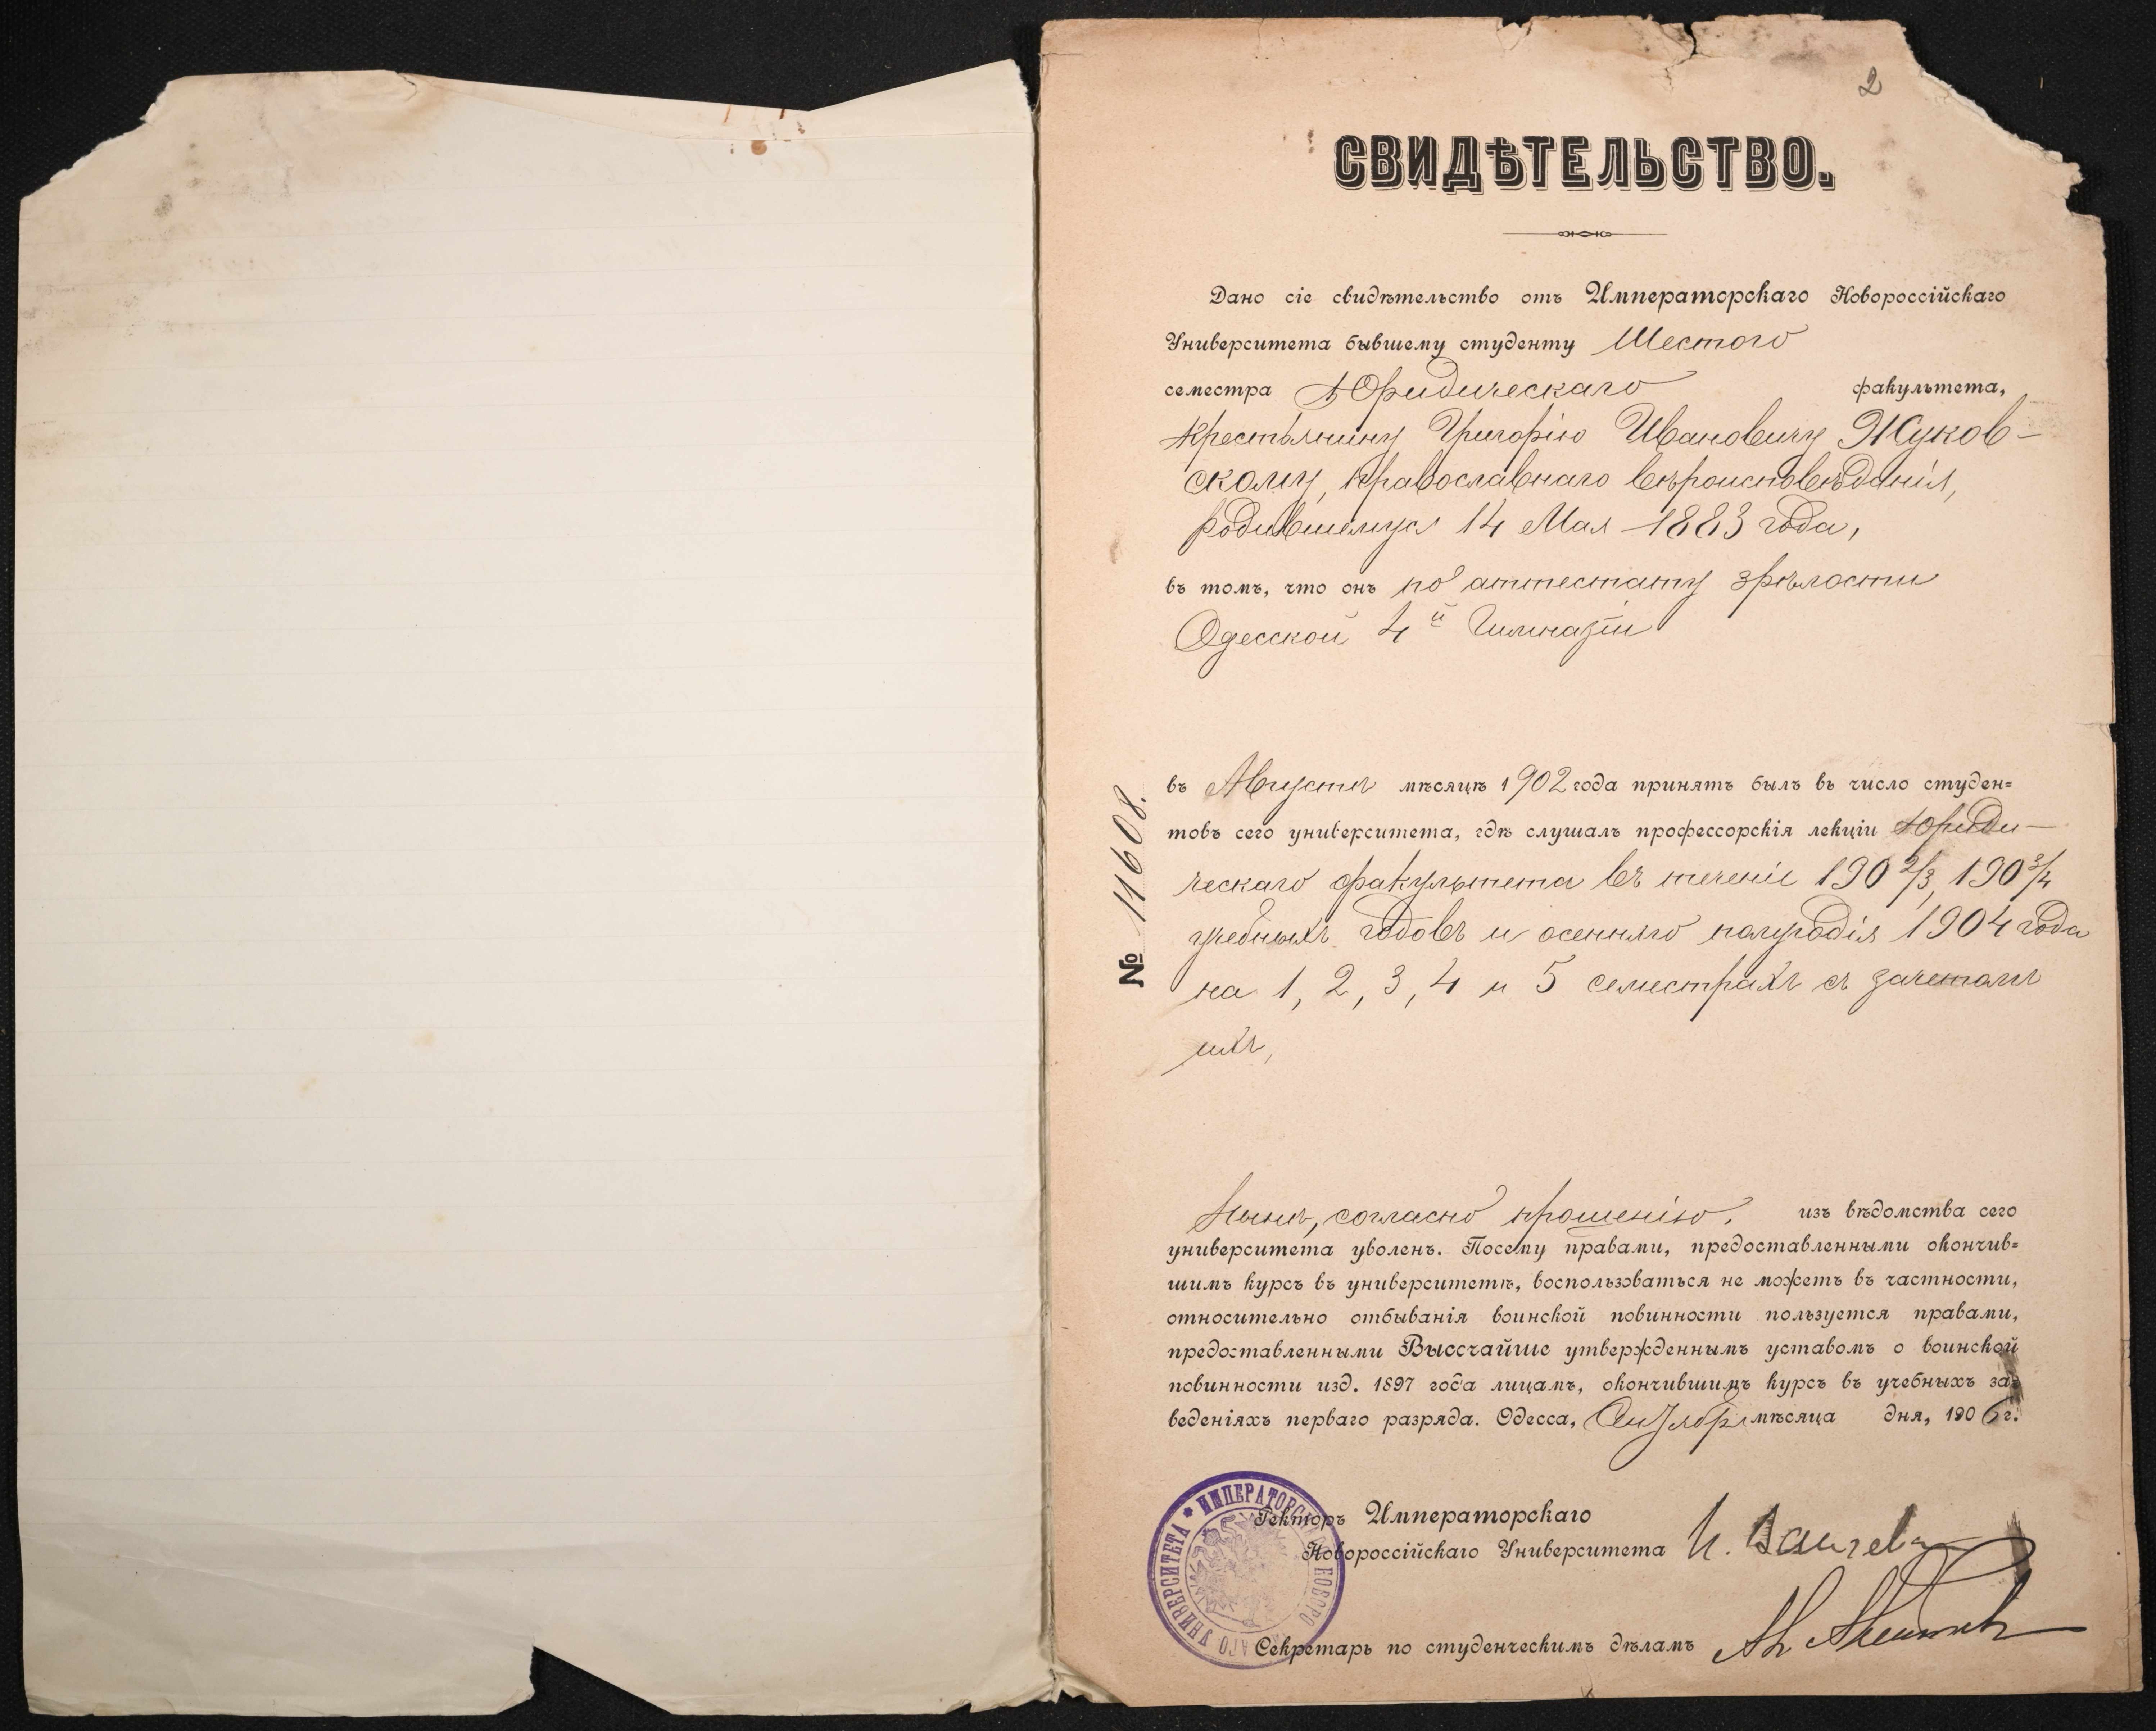 2
СВИДѢТЕЛЬСТВО.
Дано сіе свидѣтельство отъ Императорскаго Новороссійскаго
Университета бывшему студенту Шестого
семестра Юридическаго факультета,
крестьянину Григорію Ивановичу Жуков-
скому, православнаго вѣроисповѣданія,
родившемуся 14 Мая 1883 года,
въ томъ, что онъ по аттестату зрѣлости
Одесской 4й Гимназіи
въ Августѣ мѣсяцѣ 1902 года принятъ былъ въ число студен=
товъ сего университета, гдѣ слушалъ профессорскія лекціи Юриди-
ческаго факультета въ теченіе 190 2/3, 190 3/4
учебныхъ годовъ и осенняго полугодія 1904 года
на 1, 2, 3, 4 и 5 семестрахъ съ зачетомъ
ихъ,
№ 11608.
Нынѣ, согласно прошенію, изъ вѣдомства сего
университета уволенъ. Посему правами, предоставленными окончив=
шимъ курсъ въ университетѣ, воспользоваться не можетъ въ частности,
относительно отбыванія воинской повинности пользуется правами,
предоставленными Высочайше утвержденнымъ уставомъ о воинской
повинности изд. 1897 года лицамъ, окончившимъ курсъ въ учебныхъ за=
веденіяхъ перваго разряда. Одесса, мѣсяца дня, 1906 г.
Ректоръ Императорскаго
Новороссійскаго Университета
Секретарь по студенческимъ дѣламъ
ИМПЕРАТОРСКАГО НОВОРО УНИВЕРСИТЕТА